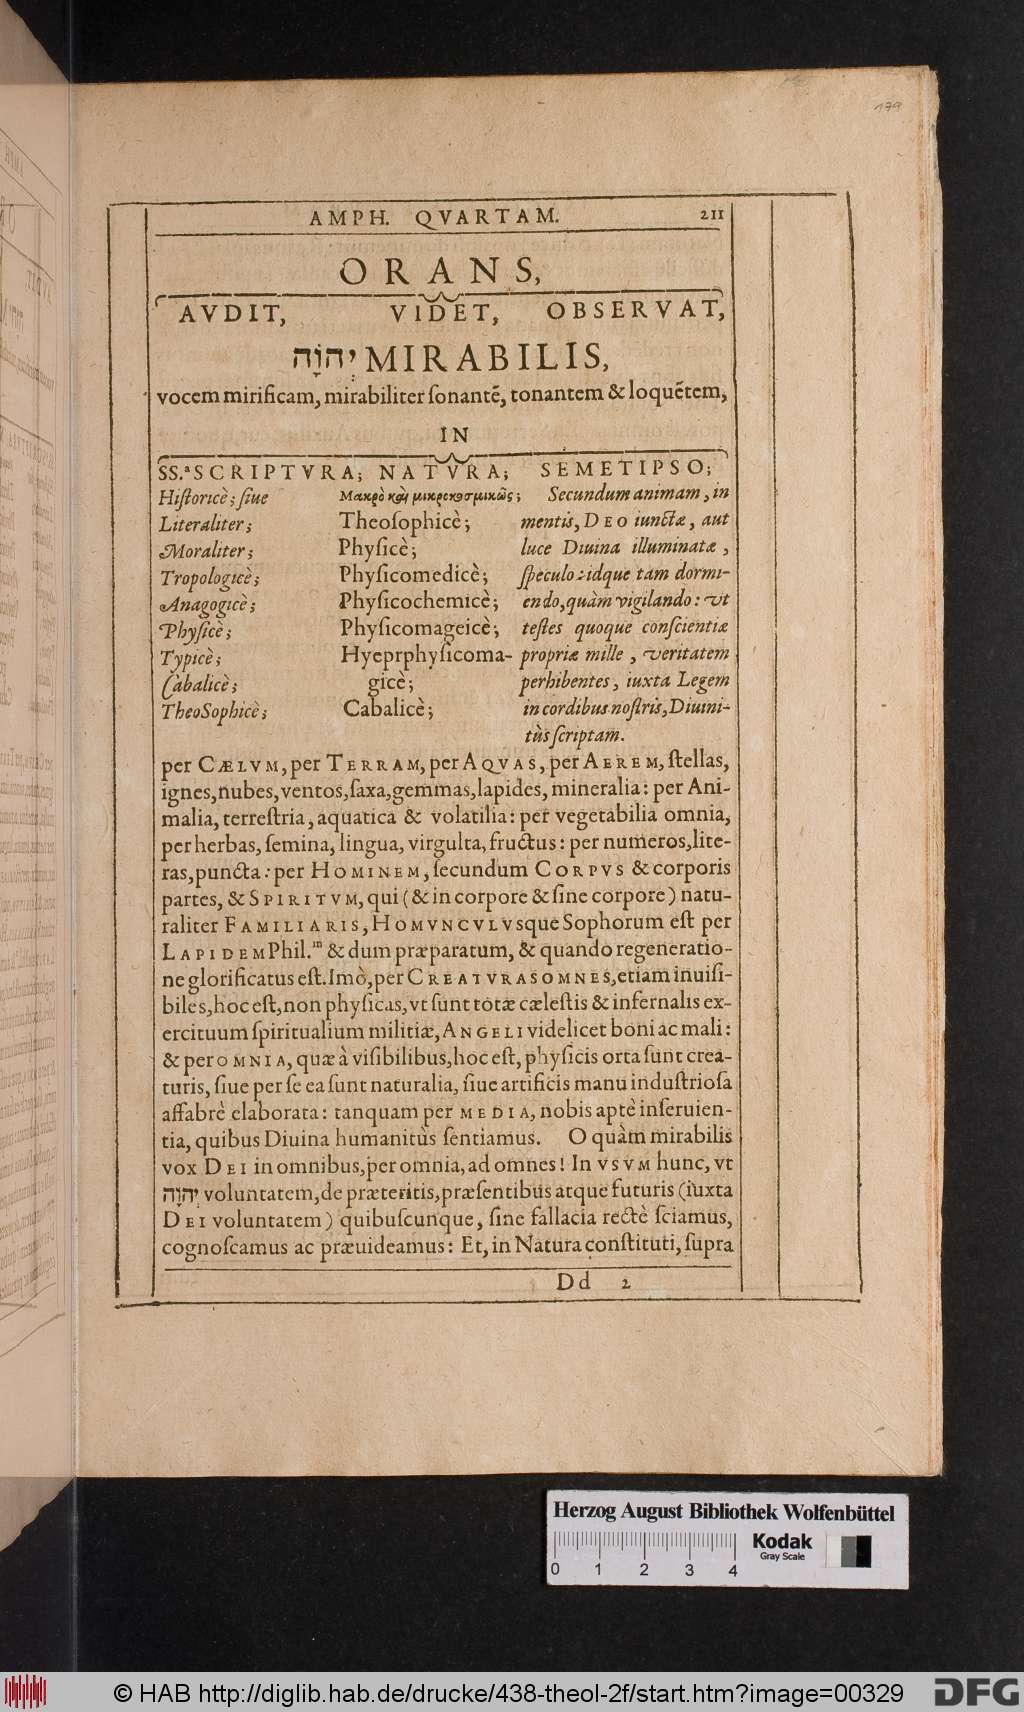 179
AMPH. QVARTAM. 211
ORANS,
AVDIT, VIDET, OBSERVAT,
יְהוָֹה MIRABILIS,
vocem mirificam, mirabiliter ſonantẽ, tonantem & loquẽtem,
IN
SS.ª SCRIPTVRA; NATVRA; SEMETIPSO;
Hiſtoricè; ſiue
Literaliter;
Moraliter;
Tropologicè;
Anagogicè;
Phyſicè;
Typicè;
Cabalicè;
TheoSophicè;
Μακρὸ καὶ μικροκοσμικῶς;
Theoſophicè;
Phyſicè;
Phyſicomedicè;
Phyſicochemicè;
Phyſicomageicè;
Hyeprphyſicoma-
gicè;
Cabalicè;
Secundum animam, in
mentis, DEO iunctæ, aut
luce Diuina illuminatæ,
ſpeculo: idque tam dormi-
endo, quàm vigilando: vt
teſtes quoque conſcientiæ
propriæ mille, veritatem
perhibentes, iuxta Legem
in cordibus noſtris, Diuini-
tùs ſcriptam.
per CÆLVM, per TERRAM, per AQVAS, per AEREM, ſtellas,
ignes, nubes, ventos, ſaxa, gemmas, lapides, mineralia: per Ani-
malia, terreſtria, aquatica & volatilia: per vegetabilia omnia,
per herbas, ſemina, lingua, virgulta, fructus: per numeros, lite-
ras, puncta: per HOMINEM, ſecundum CORPVS & corporis
partes, & SPIRITVM, qui (& in corpore & ſine corpore) natu-
raliter FAMILIARIS, HOMVNCVLVsque Sophorum eſt per
LAPIDEM Phil.ᵐ & dum præparatum, & quando regeneratio-
ne glorificatus eſt. Imò, per CREATVRAS OMNES, etiam inuiſi-
biles, hoc eſt, non phyſicas, vt ſunt totæ cæleſtis & infernalis ex-
ercituum ſpiritualium militiæ, ANGELI videlicet boni ac mali:
& per OMNIA, quæ à viſibilibus, hoc eſt, phyſicis orta ſunt crea-
turis, ſiue per ſe ea ſunt naturalia, ſiue artificis manu induſtrioſa
affabrè elaborata: tanquam per MEDIA, nobis aptè inſeruien-
tia, quibus Diuina humanitùs ſentiamus. O quàm mirabilis
vox DEI in omnibus, per omnia, ad omnes! In VSVM hunc, vt
יְהוָֹה voluntatem, de præteritis, præſentibus atque futuris (iuxta
DEI voluntatem) quibuſcunque, ſine fallacia rectè ſciamus,
cognoſcamus ac præuideamus: Et, in Natura conſtituti, ſupra
Dd 2
Herzog August Bibliothek Wolfenbüttel
Kodak
Gray Scale
0 1 2 3 4
© HAB http://diglib.hab.de/drucke/438-theol-2f/start.htm?image=00329
DFG